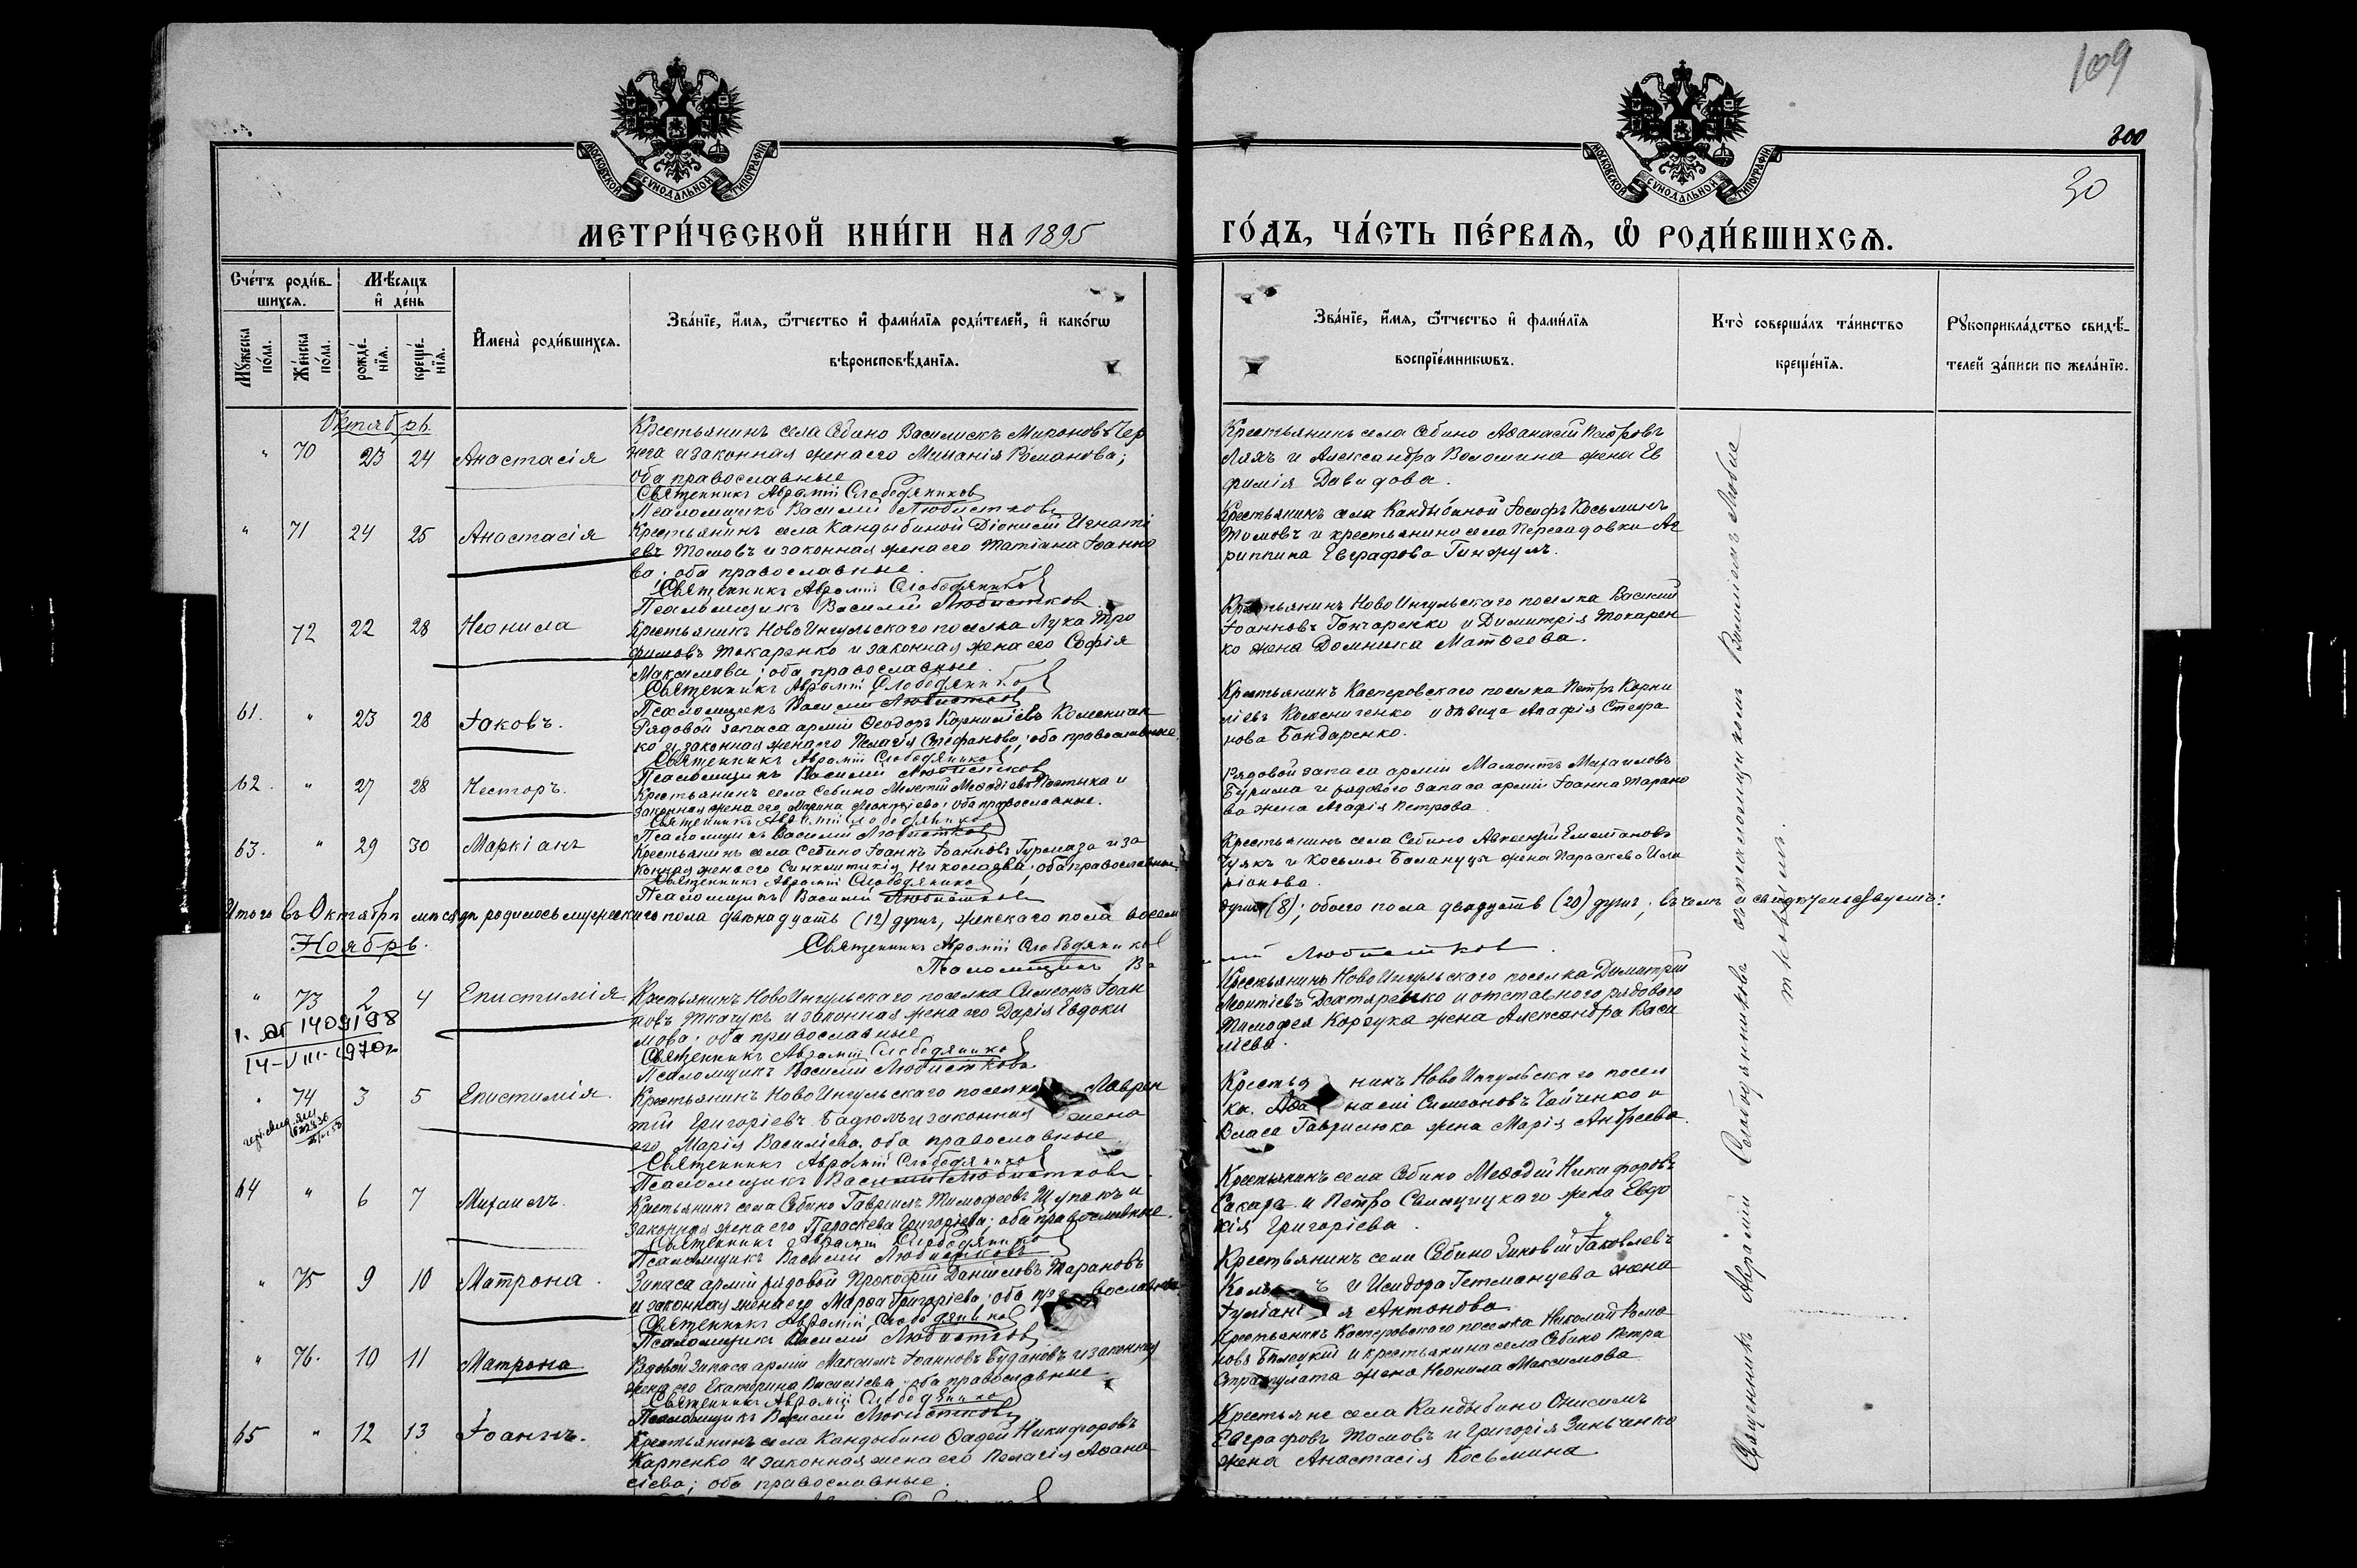 109
300
30
МОСКОВСКОЙ СѴНОДАЛЬНОЙ ТИПОГРАФІИ
МОСКОВСКОЙ СѴНОДАЛЬНОЙ ТИПОГРАФІИ
МЕТРИ́ЧЕСКОЙ КНИ́ГИ НА 1895
ГО́ДЪ, ЧА́СТЬ ПЕ́РВАѦ, Ѡ҆ РОДИ́ВШИХСѦ.
Сче́тъ роди́в-
шихсѧ.
Мꙋ́жеска по́ла.
Же́нска по́ла.
Мѣ́сѧцъ
и҆ де́нь
рожде́-нїѧ.
креще́-нїѧ.
И҆мена̀ роди́вшихсѧ.
Зва́нїе, и҆́мѧ, ѻ҆́тчество и҆ фами́лїѧ роди́телей, и҆ како́гѡ
вѣроисповѣ́данїѧ.
Зва́нїе, и҆́мѧ, ѻ҆́тчество и҆ фами́лїѧ
воспрїе́мникѡвъ.
Кто̀ соверша́лъ та́инство
креще́нїѧ.
Рꙋкоприкла́дство свидѣ́-
телей за́писи по жела́нїю.
Октябрь
" 70 23 24 Анастасія
Крестьянинъ села Себино Василискъ Мироновъ Чер
нега и законная жена его Миланія Романова;
оба православные
Священникъ Аврамій Слободяников
Псаломщикъ Василій Любистков
Крестьянинъ села Себино Аѳанасій Петровъ
Ляхъ и Александра Воломина жена Ев
фимія Давидова.
" 71 24 25 Анастасія
Крестьянинъ села Кандыбиной Діонисій Игнаті
евъ Томовъ и законная жена его Татіана Іоанно
ва; оба православные.
Священникъ Аврамій Слободяников
Псаломщикъ Василій Любистков
Крестьянинъ села Кандыбиной Іосифъ Косьминъ
Томовъ и крестьянина села Пересадовки Аг
риппина Евграфова Гинжулъ.
72 22 28 Неонила
Крестьянинъ Ново Ингульскаго поселка Лука Тро
фимовъ Токаренко и законная жена его Софія
Максимова; оба православные.
Священникъ Аврамій Слободяников
Псаломщикъ Василій Любистков
Крестьянинъ Ново Ингульскаго поселка Василій
Іоанновъ Гончаренко и Димитрія Токарен
ко жена Домника Матѳеева.
61. " 23 28 Іаковъ.
Рядовой запаса арміи Ѳеодоръ Корниліевъ Колесничен
ко и законная жена его Пелагія Стефанова; оба православные.
Священникъ Аврамій Слободяников
Псаломщикъ Василій Любистков
Крестьянинъ Касперовскаго поселка Петръ Корни
ліевъ Колесниченко и дѣвица Агафія Стефа
нова Бондаренко.
62. " 27 28 Несторъ.
Крестьянинъ села Себино Мелетій Меѳодіевъ Костыка и
законная жена его Марина Леонтіева; оба православные.
Священникъ Аврамій Слободяников
Псаломщикъ Василій Любистков
Рядовой запаса арміи Мамонтъ Михаиловъ
Бурима и рядового запаса арміи Іоанна Тарано
ва жена Агафія Петрова.
63. " 29 30 Маркіанъ
Крестьянинъ села Себино Іоаннъ Іоанновъ Гурмаза и за
конная жена его Синклитикія Николаева; оба православные.
Священникъ Аврамій Слободяников
Псаломщикъ Василій Любистков
Крестьянинъ села Себино Авксентій Емеліановъ
Чуякъ и Косьмы Балануцы жена Параскева Ила
ріонова.
Итого въ Октябрѣ мѣсяцѣ родилось мужескаго пола двѣнадцать (12) душъ, женскаго пола восемь
душъ (8); обоего пола двадцать (20) душъ; въ чемъ и свидѣтельствуемъ:
Священникъ Аврамій Слободяников
Псаломщикъ Ва
ілій Любистков.
Ноябрь.
" 73 2 4 Епистимія
1409198
14-VIII-1970г
Крестьянинъ Ново Ингульскаго поселка Симеонъ Іоан
новъ Ткачукъ и законная жена его Дарія Евдоки
мова; оба православные
Священникъ Аврамій Слободяников
Псаломщикъ Василій Любистков
Крестьянинъ Ново Ингульскаго поселка Димитрій
Леонтіевъ Дехтяренко и отставного рядового
Тимофея Корсука жена Александра Васи
ліева.
" 74 3 5 Епистимія
Крестьянинъ Ново Ингульскаго поселка Лаврен
тій Григоріевъ Бадюлъ и законная жена
его Марія Василіева, оба православные
Священникъ Аврамій Слободяников
Псаломщикъ Василій Любистков
Крестьянинъ Ново Ингульскаго посел
ка Аѳанасій Симеоновъ Чайченко и
Власа Гаврилюка жена Марія Андреева.
64 " 6 7 Михаилъ.
Крестьянинъ села Себино Гавріилъ Тимофеевъ Щупакъ и
законная жена его Параскева Григоріева; оба православные.
Священникъ Аврамій Слободяников
Псаломщикъ Василій Любистков
Крестьянинъ села Себино Меѳодій Никифоровъ
Сакара и Петра Свинцицкаго жена Евдо
кія Григоріева.
" 75 9 10 Матрона.
Запаса арміи рядовой Прокофій Даніиловъ Тарановъ
и законная жена его Марѳа Григоріева; оба православные.
Священникъ Аврамій Слободяников
Псаломщикъ Василій Любистков
Крестьянинъ села Себино Зиновій Іаковлевъ
и Исидора Гетманцева жена
Іуліанія Антонова.
" 76. 10 11 Матрона
Рядовой запаса арміи Максимъ Іоанновъ Будановъ и законная
жена его Екатерина Василіева; оба православные
Священникъ Аврамій Слободяников
Псаломщикъ Василій Любистков
Крестьянинъ Касперовскаго поселка Николай Рома
новъ Билецкій и крестьянина села Себино Петра
жена Неонила Максимова.
65 " 12 13 Іоаннъ.
Крестьянинъ села Кандыбино Ѳадей Никифоровъ
Карпенко и законная жена его Пелагія Аѳана
сіева; оба православные.
Крестьяне села Кандыбино Онисимъ
Евграфовъ Томовъ и Григорія Зинченко
жена Анастасія Косьмина.
Священникъ Аврамій Слободяниковъ съ псаломщикомъ Василіемъ Любис
тковымъ.